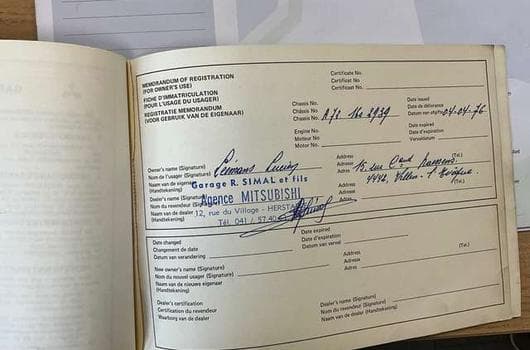 MEMORANDUM OF REGISTRATION
(FOR OWNER'S USE)
FICHE D'IMMATRICULATION
(POUR L'USAGE DU USAGER)
REGISTRATIE MEMORANDUM
(VOOR GEBRUIK VAN DE EIGENAAR)
Certificate No.
Certificat No.
Certificaat No.
Chassis No.
Châssis No.
Chassis No. A72
3939
Date issued
Date de délivrance
Datum van afgifte 04-04-76
Engine No.
Moteur No.
Motor No.
Date expired
Date d'expiration
Vervaldatum
Owner's name (Signature)
Nom de l'usager (Signature)
Naam van de eigenaar
(Handtekening)
Lucien
Address
Adresse
Adres
(Tel.)
15 rue
4442,
Dealer's name (Signature)
Nom du revendeur (Signature)
Naam van de dealer
(Handtekening)
Garage R. SIMAL et fils
Agence MITSUBISHI
12, rue du Village - HERSTAL
Tél. 041 / 57.40
Address
Adresse
Adres
(Tel.)
Date changed
Changement de date
Datum van verandering
Date expired
Date d'expiration
Datum van verval
New owner's name (Signature)
Nom du nouvel usager (Signature)
Naam van de nieuwe eigenaar
(Handtekening)
Address
Adresse
Adres
(Tel.)
Dealer's certification
Certification du revendeur
Waarborg van de dealer
Dealer's name (Signature)
Nom du revendeur (Signature)
Naam van de dealer (Handtekening)